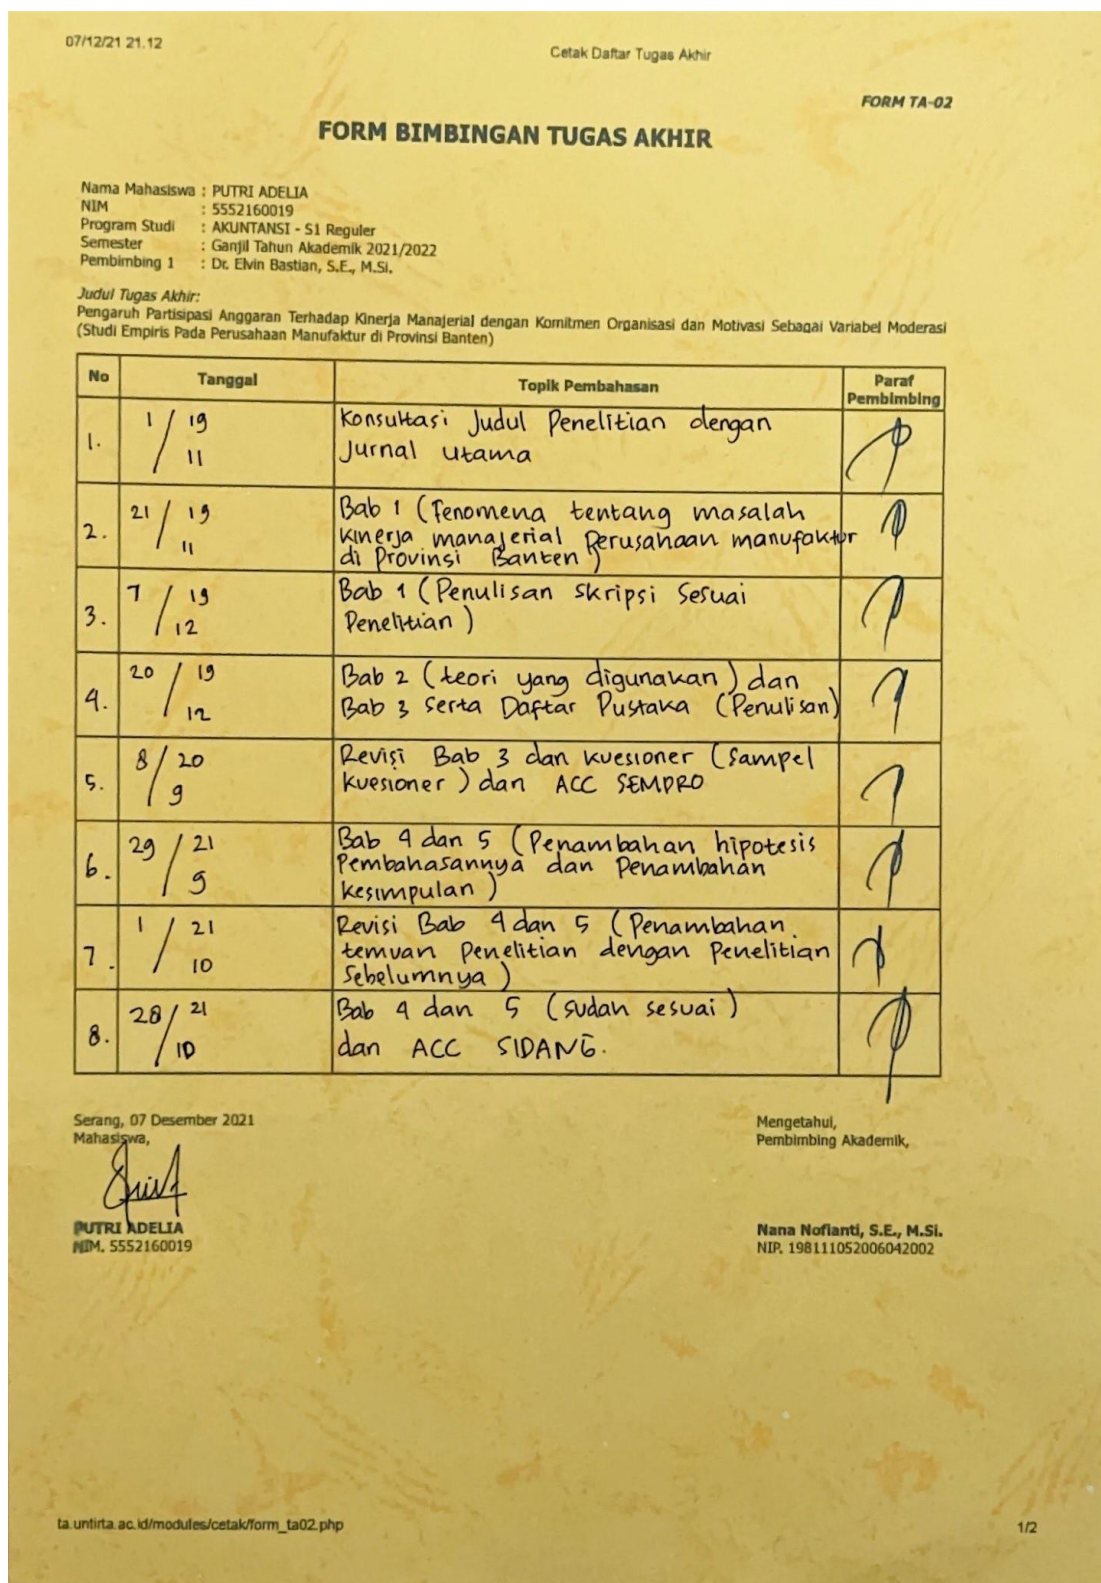 07/12/21 21.12
Cetak Daftar Tugas Akhir
FORM TA-02
FORM BIMBINGAN TUGAS AKHIR
Nama Mahasiswa : PUTRI ADELIA
NIM : 5552160019
Program Studi : AKUNTANSI - S1 Reguler
Semester : Ganjil Tahun Akademik 2021/2022
Pembimbing 1 : Dr. Elvin Bastian, S.E., M.Si.
Judul Tugas Akhir:
Pengaruh Partisipasi Anggaran Terhadap Kinerja Manajerial dengan Komitmen Organisasi dan Motivasi Sebagai Variabel Moderasi
(Studi Empiris Pada Perusahaan Manufaktur di Provinsi Banten)
No Tanggal Topik Pembahasan Paraf Pembimbing
1. 1 / 19 Konsultasi Judul Penelitian dengan
11 Jurnal utama
2. 21 / 19 Bab 1 (Fenomena tentang masalah
kinerja manajerial Perusahaan manufaktur
11 di Provinsi Banten)
3. 7 / 19 Bab 1 (Penulisan skripsi sesuai
12 Penelitian)
4. 20 / 19 Bab 2 (teori yang digunakan) dan
12 Bab 3 serta Daftar Pustaka (Penulisan)
5. 8 / 20 Revisi Bab 3 dan kuesioner (Sampel
9 kuesioner) dan ACC SEMPRO
6. 29 / 21 Bab 4 dan 5 (Penambahan hipotesis
9 Pembahasannya dan Penambahan
kesimpulan)
7. 1 / 21 Revisi Bab 4 dan 5 (Penambahan
10 temuan Penelitian dengan Penelitian
Sebelumnya)
8. 28 / 21 Bab 4 dan 5 (sudah sesuai)
10 dan ACC SIDANG.
Serang, 07 Desember 2021
Mahasiswa,
PUTRI ADELIA
NIM. 5552160019
Mengetahui,
Pembimbing Akademik,
Nana Nofianti, S.E., M.Si.
NIP. 198111052006042002
ta.untirta.ac.id/modules/cetak/form_ta02.php
1/2